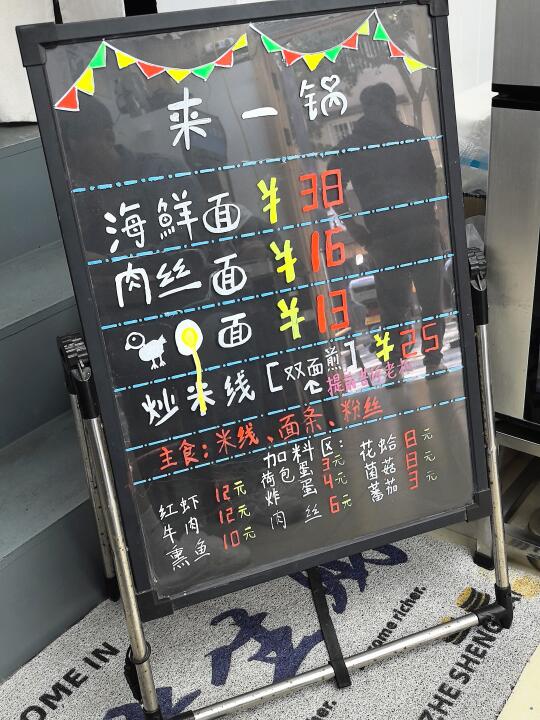 来一锅
海鲜面 ¥38
肉丝面 ¥16
面 ¥13
炒米线[双面煎] ¥25
主食:米线、面条、粉丝
加料区:
红虾 12元
牛肉 12元
熏鱼 10元
荷包蛋 3元
炸蛋 4元
肉丝 6元
花蛤 8元
菌菇 8元
蕃茄 3元
OME IN
come richer.
come richer.
ZHE SHENG